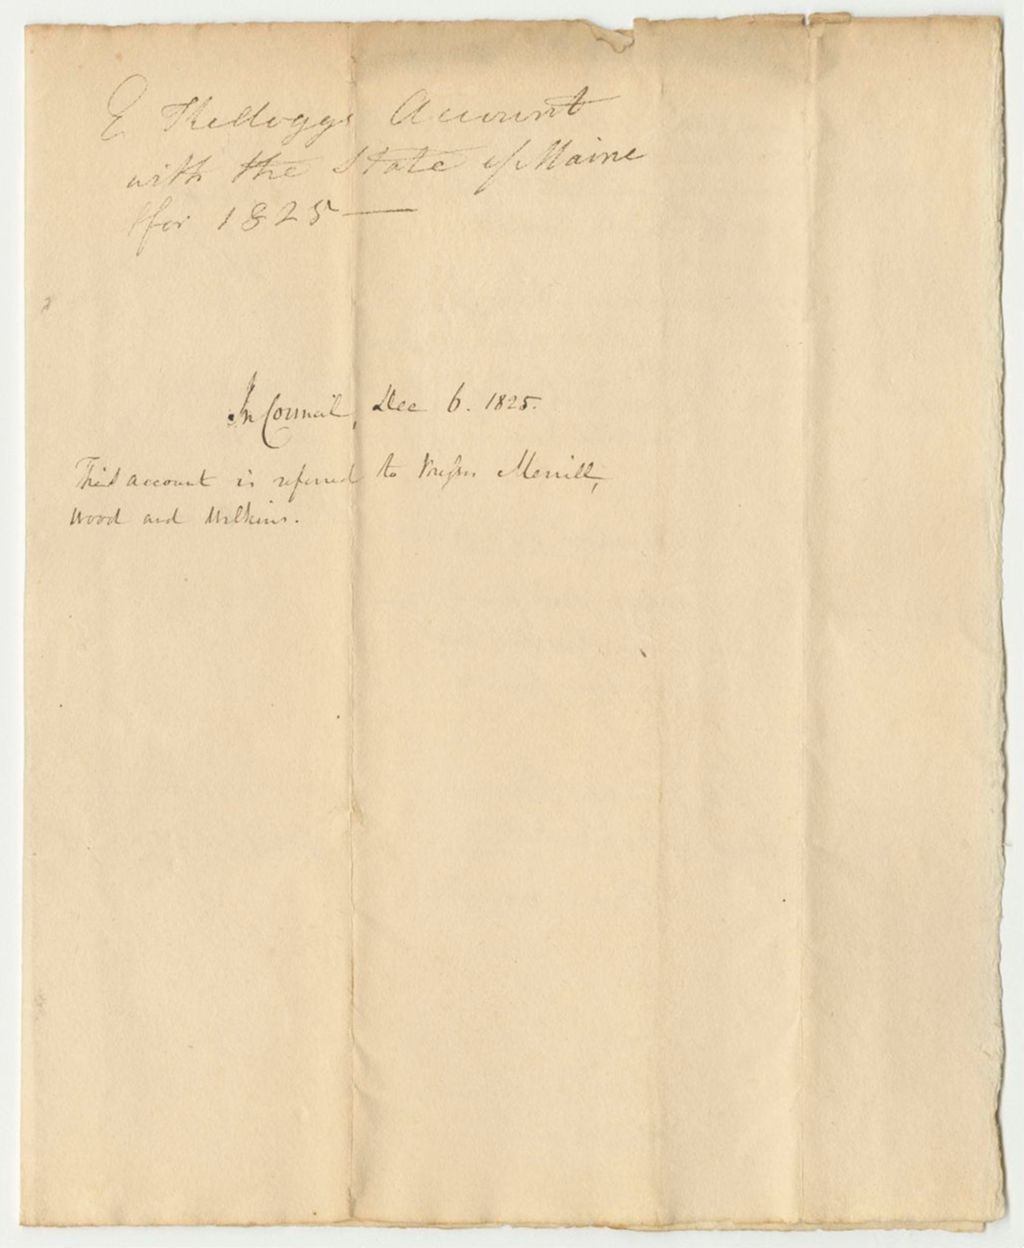 E Kelloggs Account
with the State of Maine
for 1825 —
In Council, Dec 6. 1825.
This account is referred to Messrs Merrill,
Wood and Wilkins.